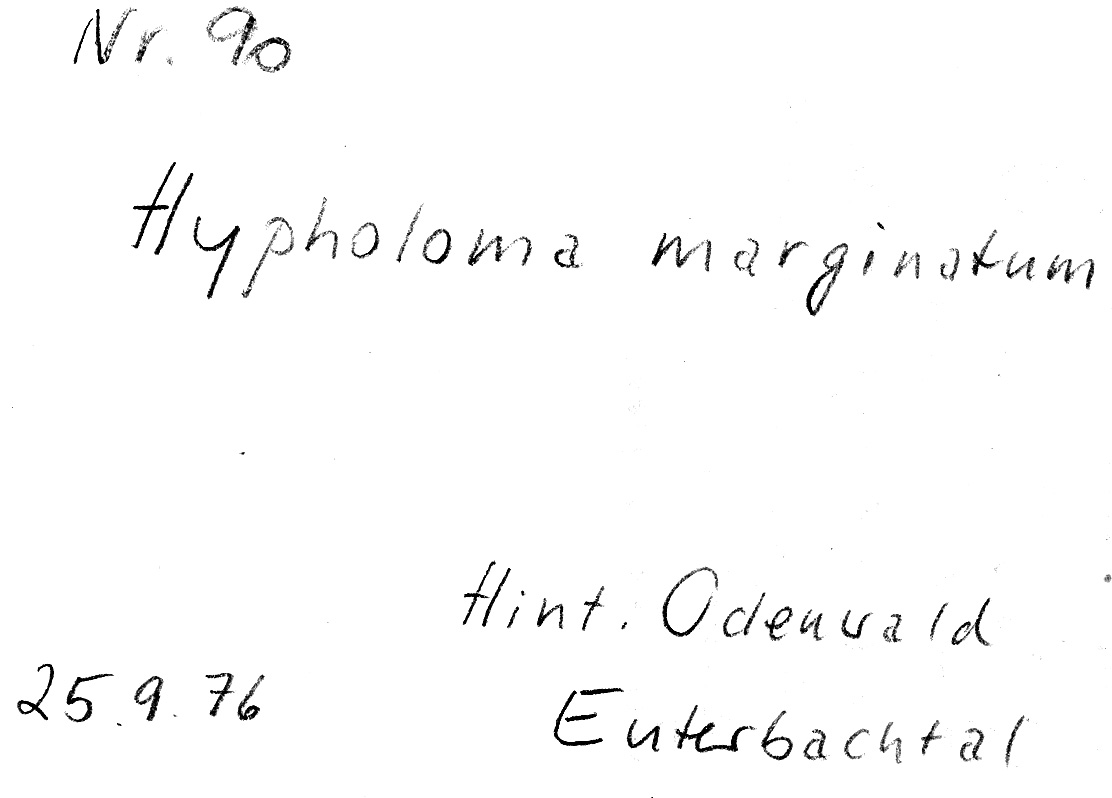 Nr. 90
Hypholoma marginatum
Hint. Odenwald
25.9.76 Euterbachtal